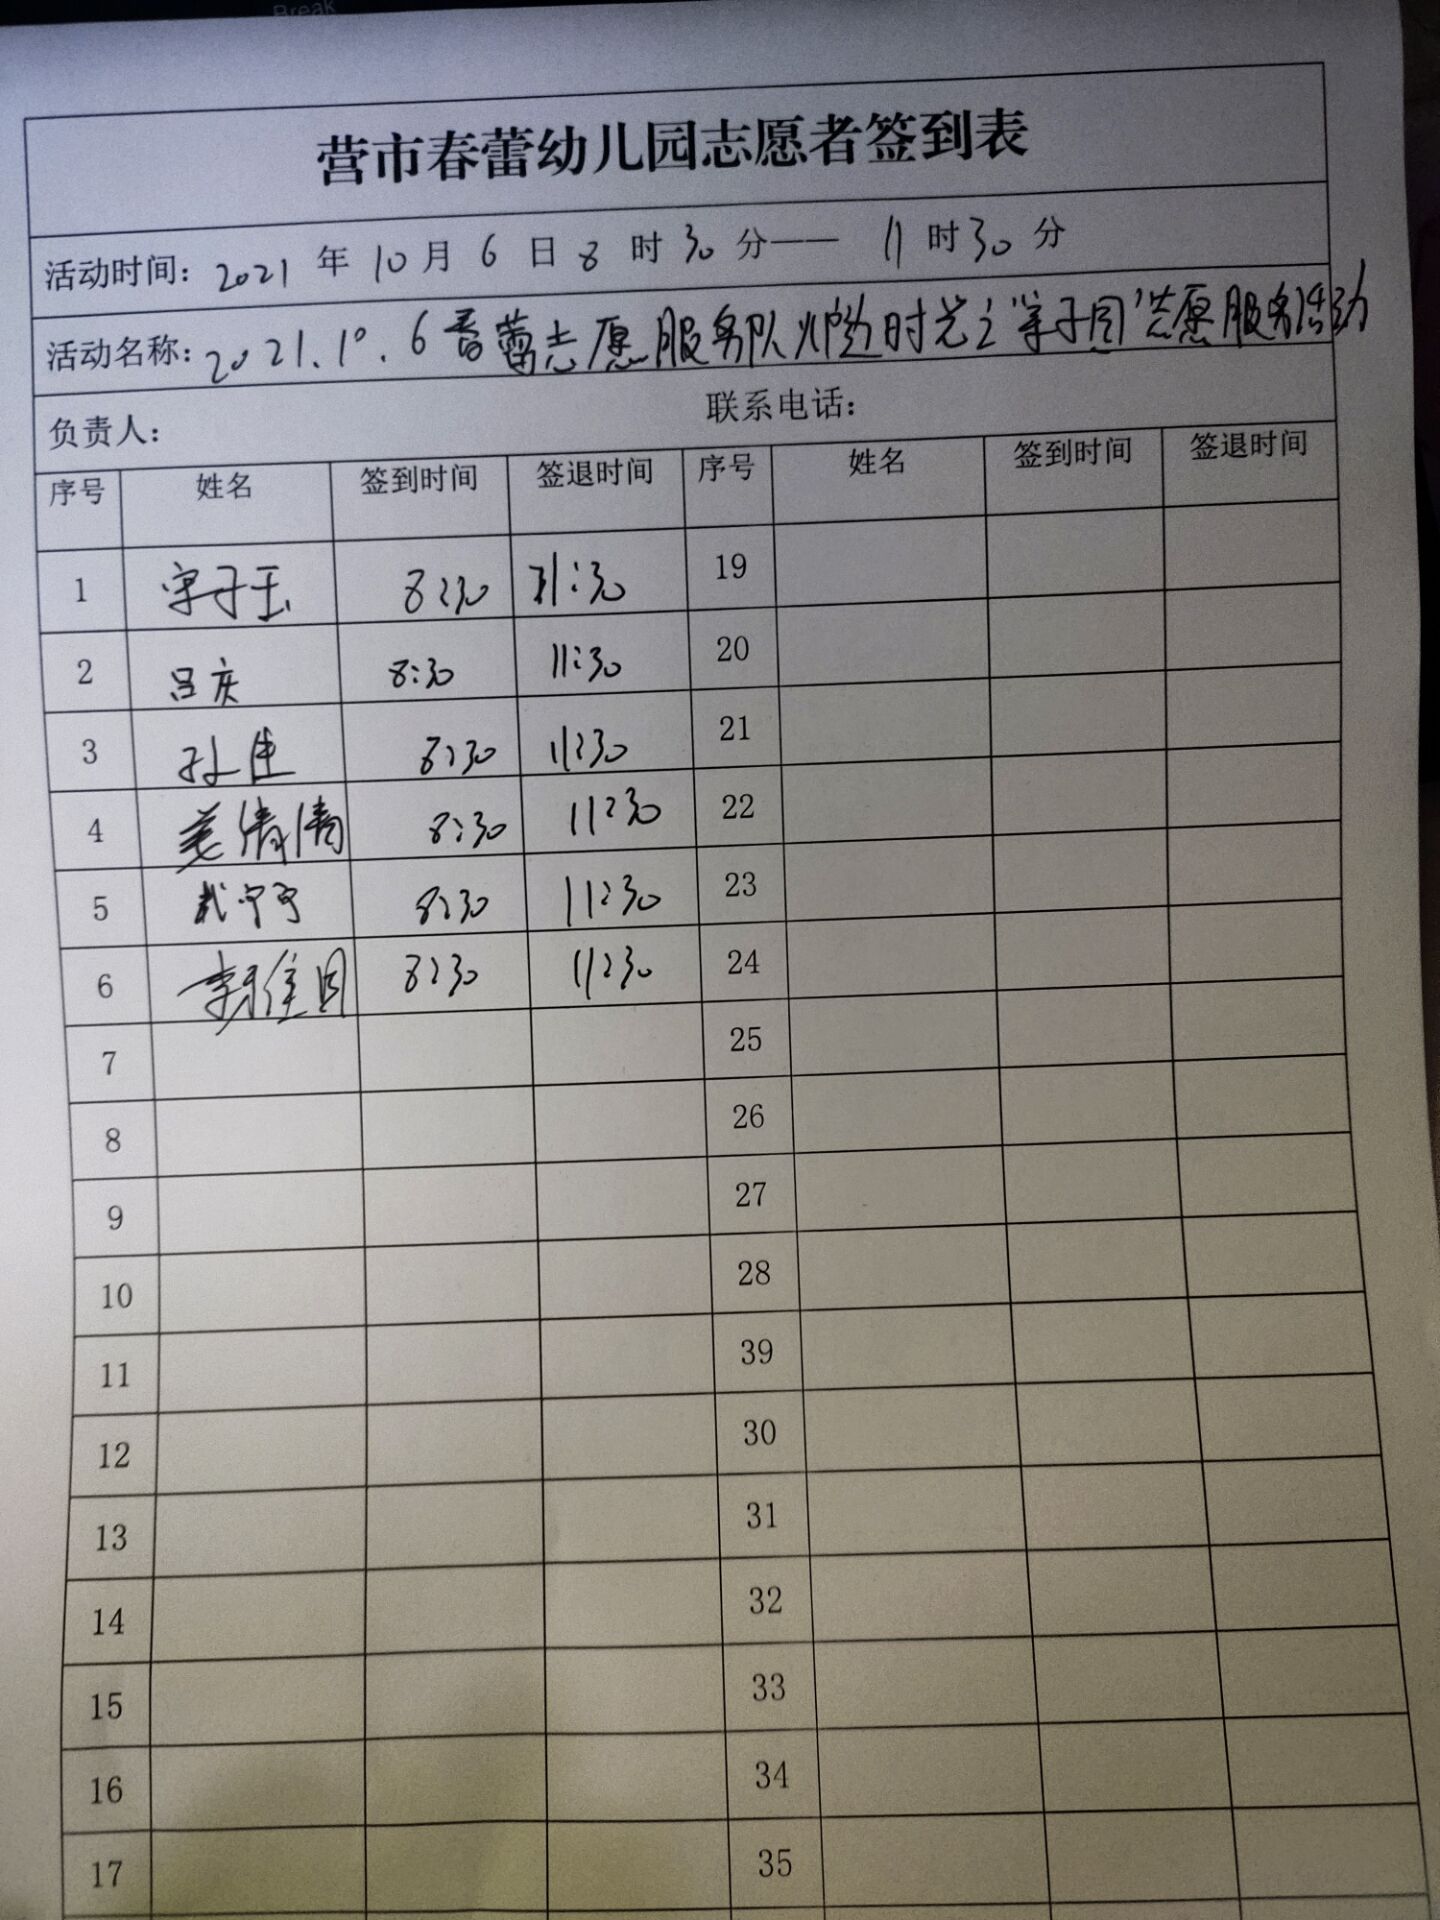 Break
营市春蕾幼儿园志愿者签到表
活动时间： 2021 年 10 月 6 日 8 时 30 分—— 11 时 30 分
活动名称： 2021.10.6春蕾志愿服务队 时光之 志愿服务活动
负责人： 联系电话：
序号 姓名 签到时间 签退时间 序号 姓名 签到时间 签退时间
1 子玉 8:30 11:30 19
2 吕庆 8:30 11:30 20
3 孙佳 8:30 11:30 21
4 姜倩倩 8:30 11:30 22
5 武宁宁 8:30 11:30 23
6 8:30 11:30 24
7 25
8 26
9 27
10 28
11 39
12 30
13 31
14 32
15 33
16 34
17 35